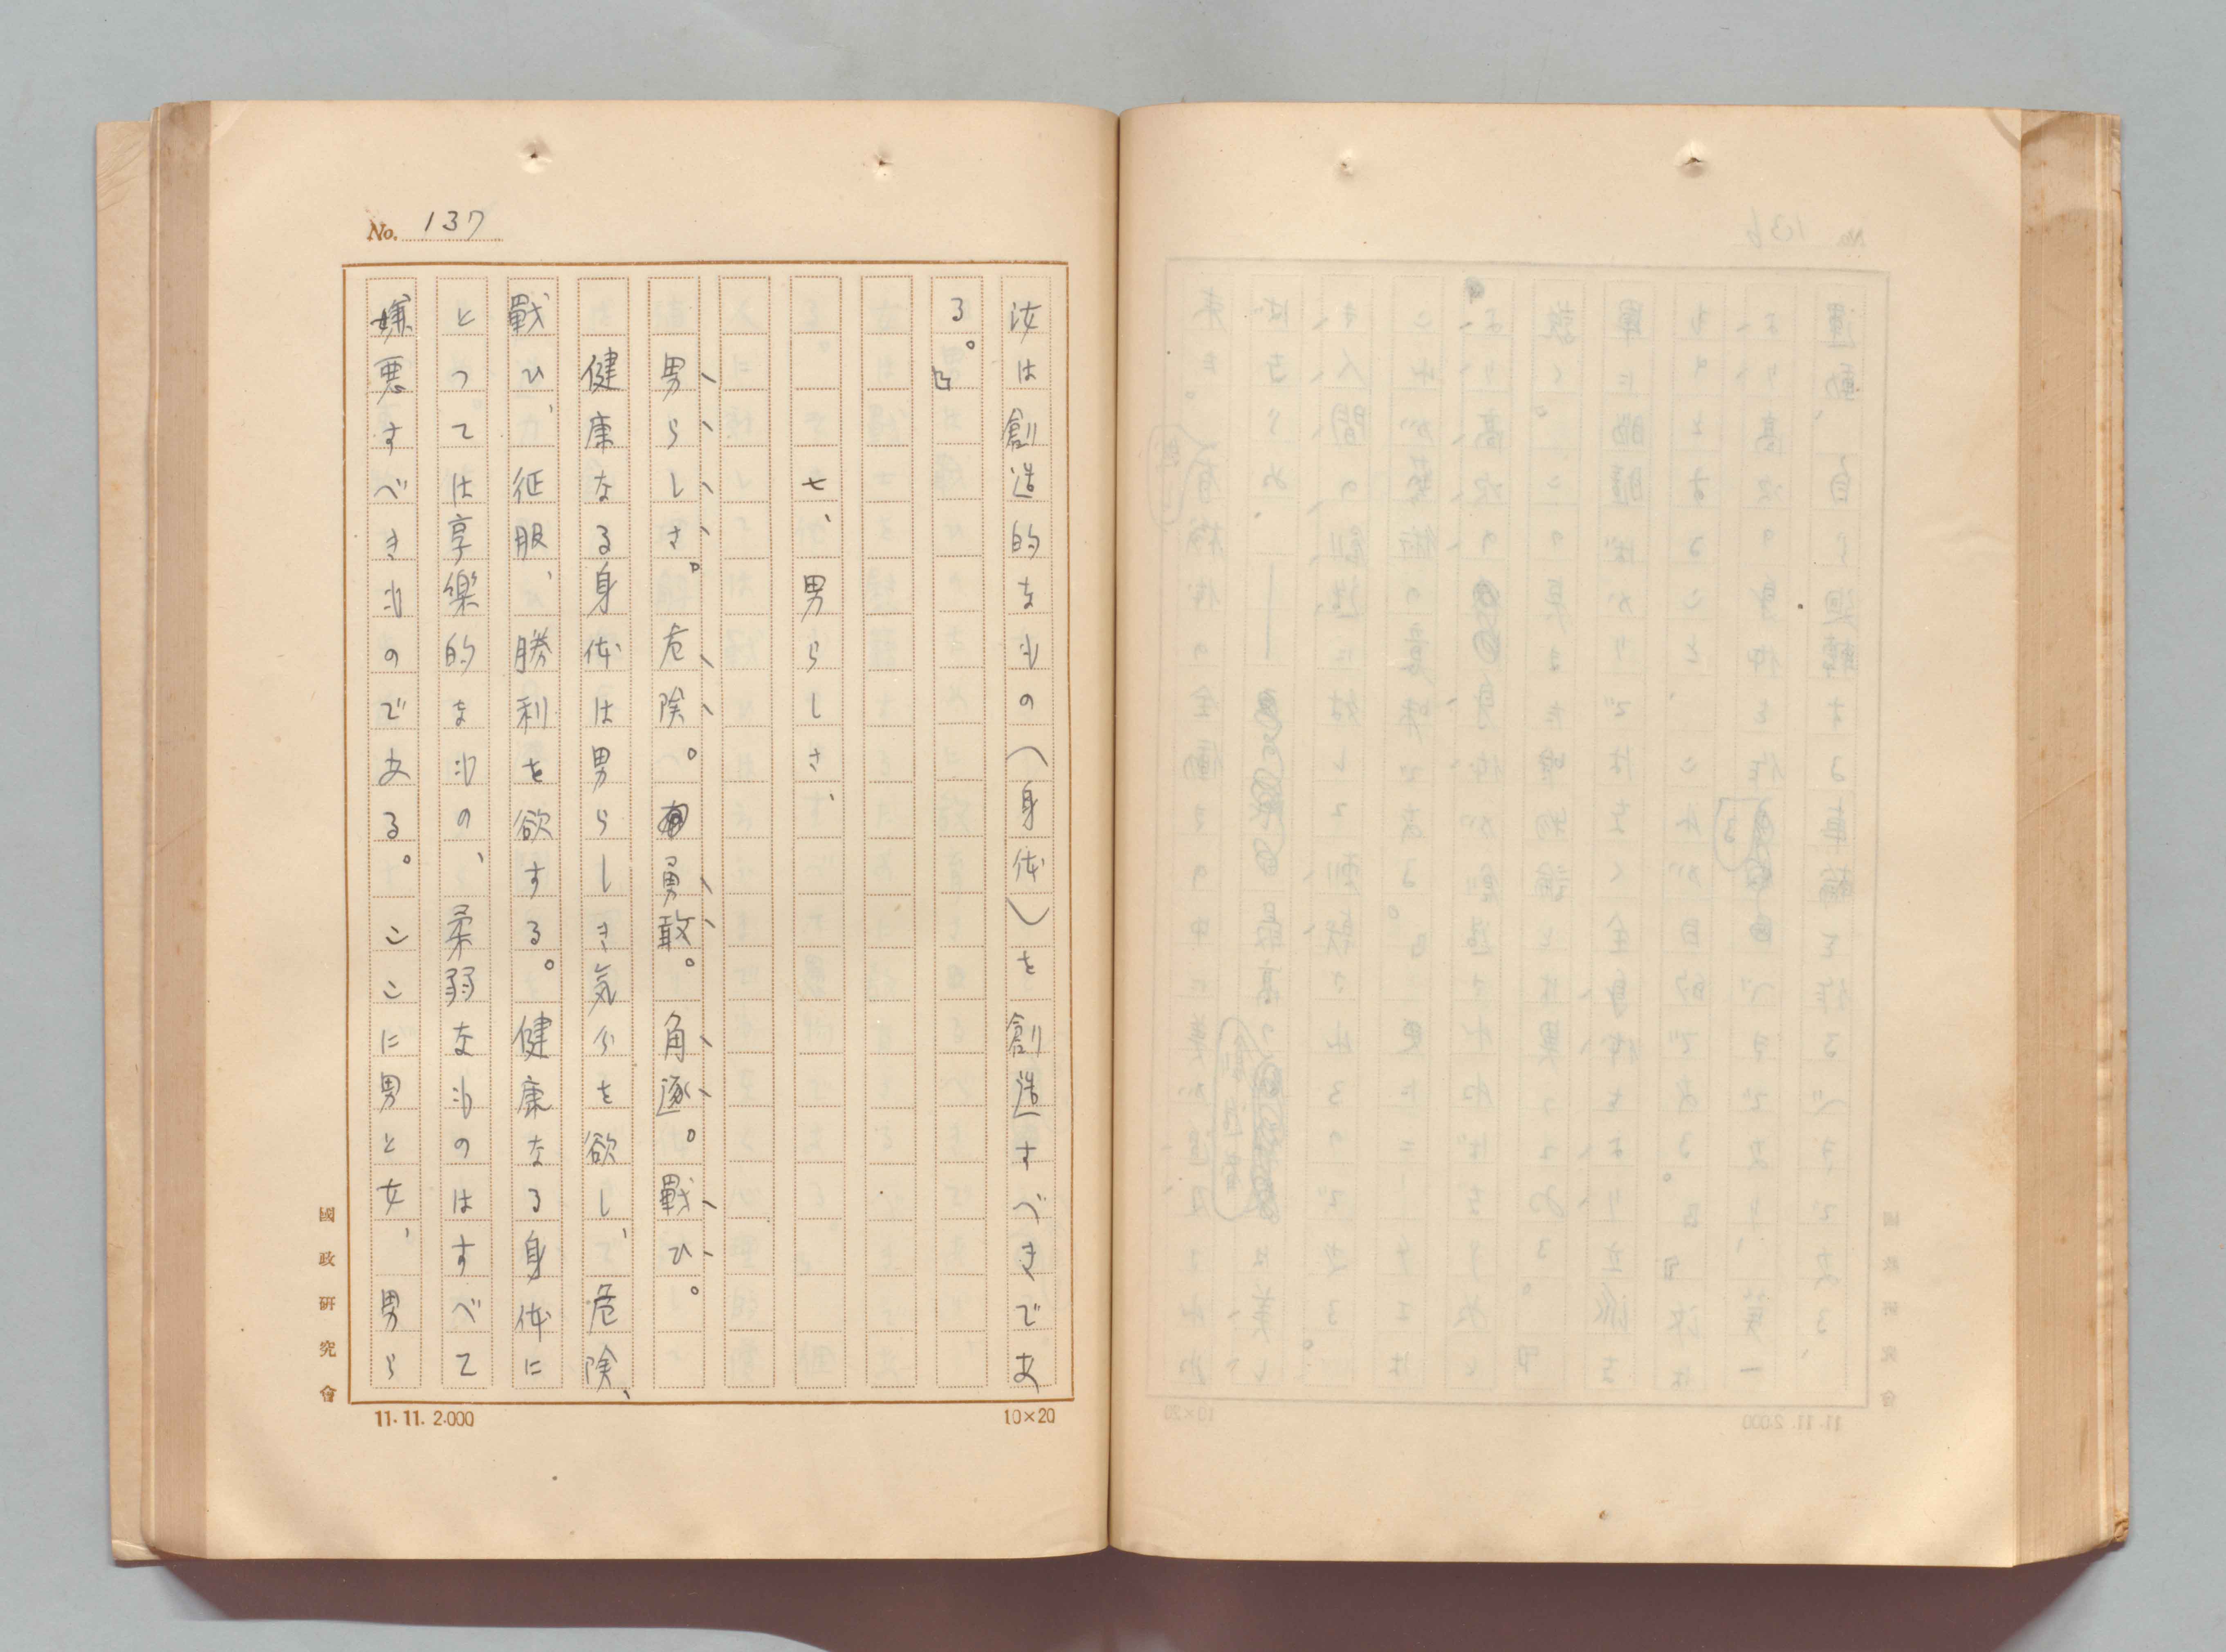 No. 137
汝は創造的なもの(身体)を創造すべきであ
る。』
七、男らしさ、
男らしさ。危険。勇敢。角逐。戰ひ。
健康なる身体は男らしき気分を欲し、危険、
戰ひ、征服、勝利を欲する。健康なる身体に
とつては享樂的なもの、柔弱なものはすべて
嫌悪すべきものである。ここに男と女、男ら
國政研究會
11.11.2.000
10×20